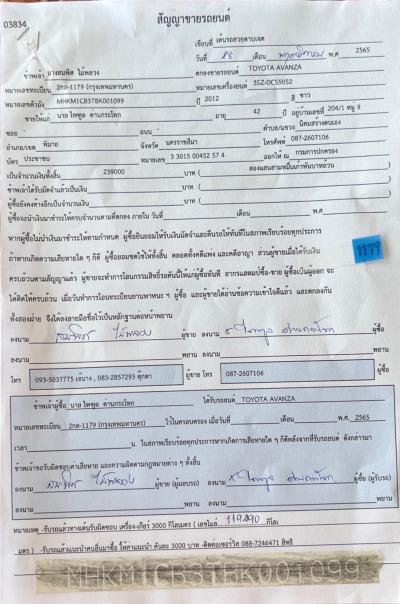 03834
สัญญาขายรถยนต์
เขียนที่ เต้นรถสวยดาบเจต
วันที่ เดือน พฤศจิกายน พ.ศ 2565
ข้าพเจ้า นางสมพิศ ไม้พลวง ตกลงขายรถยนต์ TOYOTA AVANZA
หมายเลขทะเบียน 2กล-1179 (กรุงเทพมหานคร) หมายเลขเครื่องยนต์ 3SZ-DCS5052
หมายเลขตัวถัง MHKM1CB3TBK001099 ปี 2012 สี ขาว
ขายให้แก่ นาย ไพฑูล ด่านกระโทก อายุ 42 ปี อยู่บ้านเลขที่ 204/1 หมู่ 9
ซอย - ถนน - ตำบล/แขวง นิคมสร้างตนเอง
อำเภอ/เขต พิมาย จังหวัด นครราชสีมา โทรศัพท์ 087-2607106
บัตร ประชาชน หมายเลข 3 3015 00452 57 4 ออกให้ ณ กรมการปกครอง
เป็นจำนวนเงินทั้งสิ้น 239000 บาท ( สองแสนสามหมื่นเก้าพันบาทถ้วน )
ข้าพเจ้าได้รับมัดจำแล้วเป็นเงิน บาท ( )
ผู้ซื้อยังคงค้างอีกเป็นจำนวนเงิน บาท ( )
ผู้ซื้อจะนำเงินมาชำระให้ครบจำนวนตามที่ตกลง ภายใน วันที่ เดือน พ.ศ.
หากผู้ซื้อไม่นำเงินมาชำระให้ตามกำหนด ผู้ซื้อยินยอมให้ริบเงินมัดจำและคืนรถให้ทันทีในสภาพเรียบร้อยทุกประการ
ถ้าหากเกิดความเสียหายใด ๆ ก็ดี ผู้ซื้อยอมชดใช้ให้ทั้งสิ้น ตลอดทั้งคดีแพ่ง และคดีอาญา ส่วนผู้ขายเมื่อได้รับเงิน
1179
ครบถ้วนตามสัญญาแล้ว ผู้ขายจะทำการโอนกรรมสิทธิ์รถคันนี้ให้แก่ผู้ซื้อทันที อากรแสตมป์ซื้อ-ขาย ผู้ซื้อเป็นผู้ออก จะ
ได้คิดให้ครบถ้วน เมื่อวันทำการโอนทะเบียนยานพาหนะ ฯ ผู้ซื้อ และผู้ขายได้อ่านข้อความเข้าใจดีแล้ว และตกลงกัน
ทั้งสองฝ่าย จึงได้ลงลายมือชื่อไว้เป็นหลักฐานต่อหน้าพยาน
ลงนาม สมพิศ ไม้พลวง ผู้ขาย ลงนาม x ไพฑูล ด่านกระโทก ผู้ซื้อ
ลงนาม พยาน ลงนาม พยาน
โทร 093-5037775 เจ้นาง , 083-2857293 ตุ๊กตา ผู้ขาย โทร 087-2607106 ผู้ซื้อ
ข้าพเจ้าผู้ซื้อ นาย ไพฑูล ด่านกระโทก ได้รับรถยนต์ TOYOTA AVANZA
หมายเลขทะเบียน 2กล-1179 (กรุงเทพมหานคร) ไว้ในครอบครอง เมื่อวันที่ เดือน พ.ศ. 2565
เวลา น. ในสภาพเรียบร้อยทุกประการหากเกิดการเสียหายใด ๆ ก็ดีหลังจากที่รับรถยนต์ ดังกล่าวมา
ข้าพเจ้าขอรับผิดชอบค่าเสียหาย และความผิดตามกฎหมายต่าง ๆ ทั้งสิ้น
ลงนาม สมพิศ ไม้พลวง ผู้ขาย (ผู้มอบรถ) ลงนาม x ไพฑูล ด่านกระโทก ผู้ซื้อ (ผู้รับรถ)
ลงนาม พยาน ลงนาม พยาน
หมายเหตุ -รับรถแล้วทางเต้นรับผิดชอบ เครื่อง-เกียร์ 3000 กิโลเมตร ( เลขไมล์ 119490 กิโล
เมตร ) -รับรถแล้วแนะนำคนอื่นมาซื้อ ให้ค่าแนะนำ คันละ 3000 บาท -ติดต่อเซอร์วิส 088-7246471 สิทธิ
MHKM1CB3TBK001099